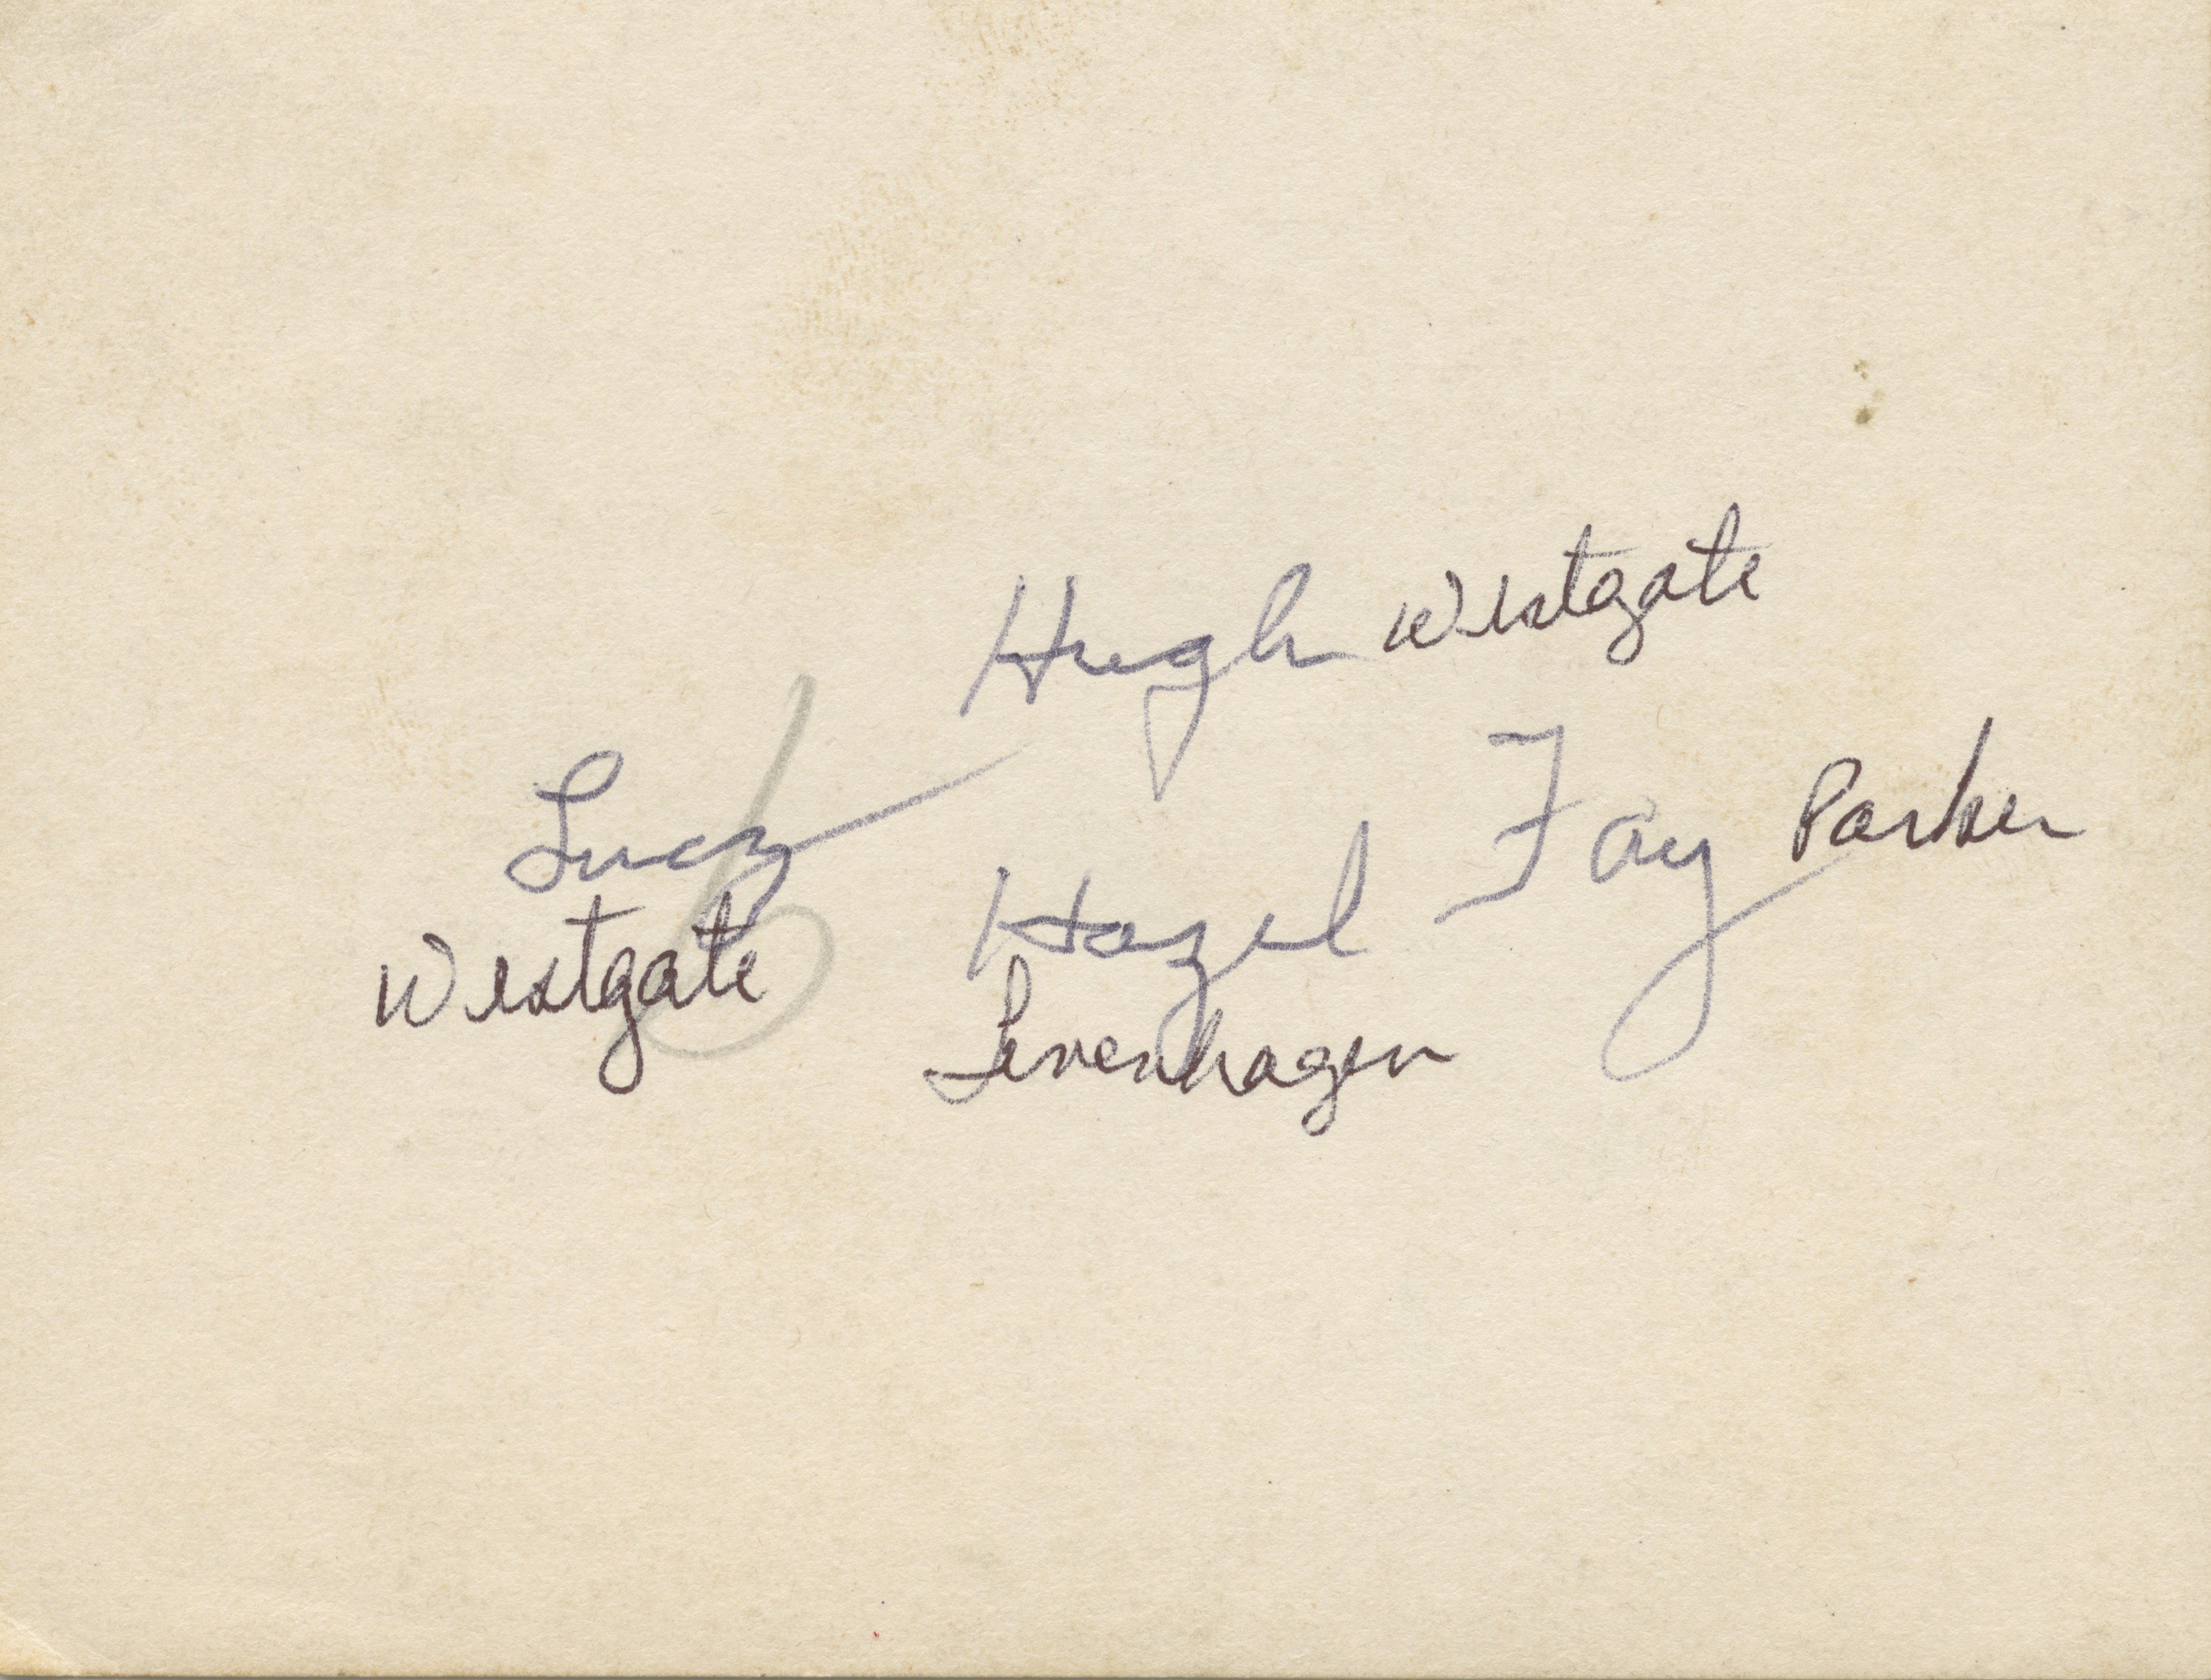 Hugh Westgate
Lucy
Westgate
6
Hazel
Levenhagen
Fay Parker